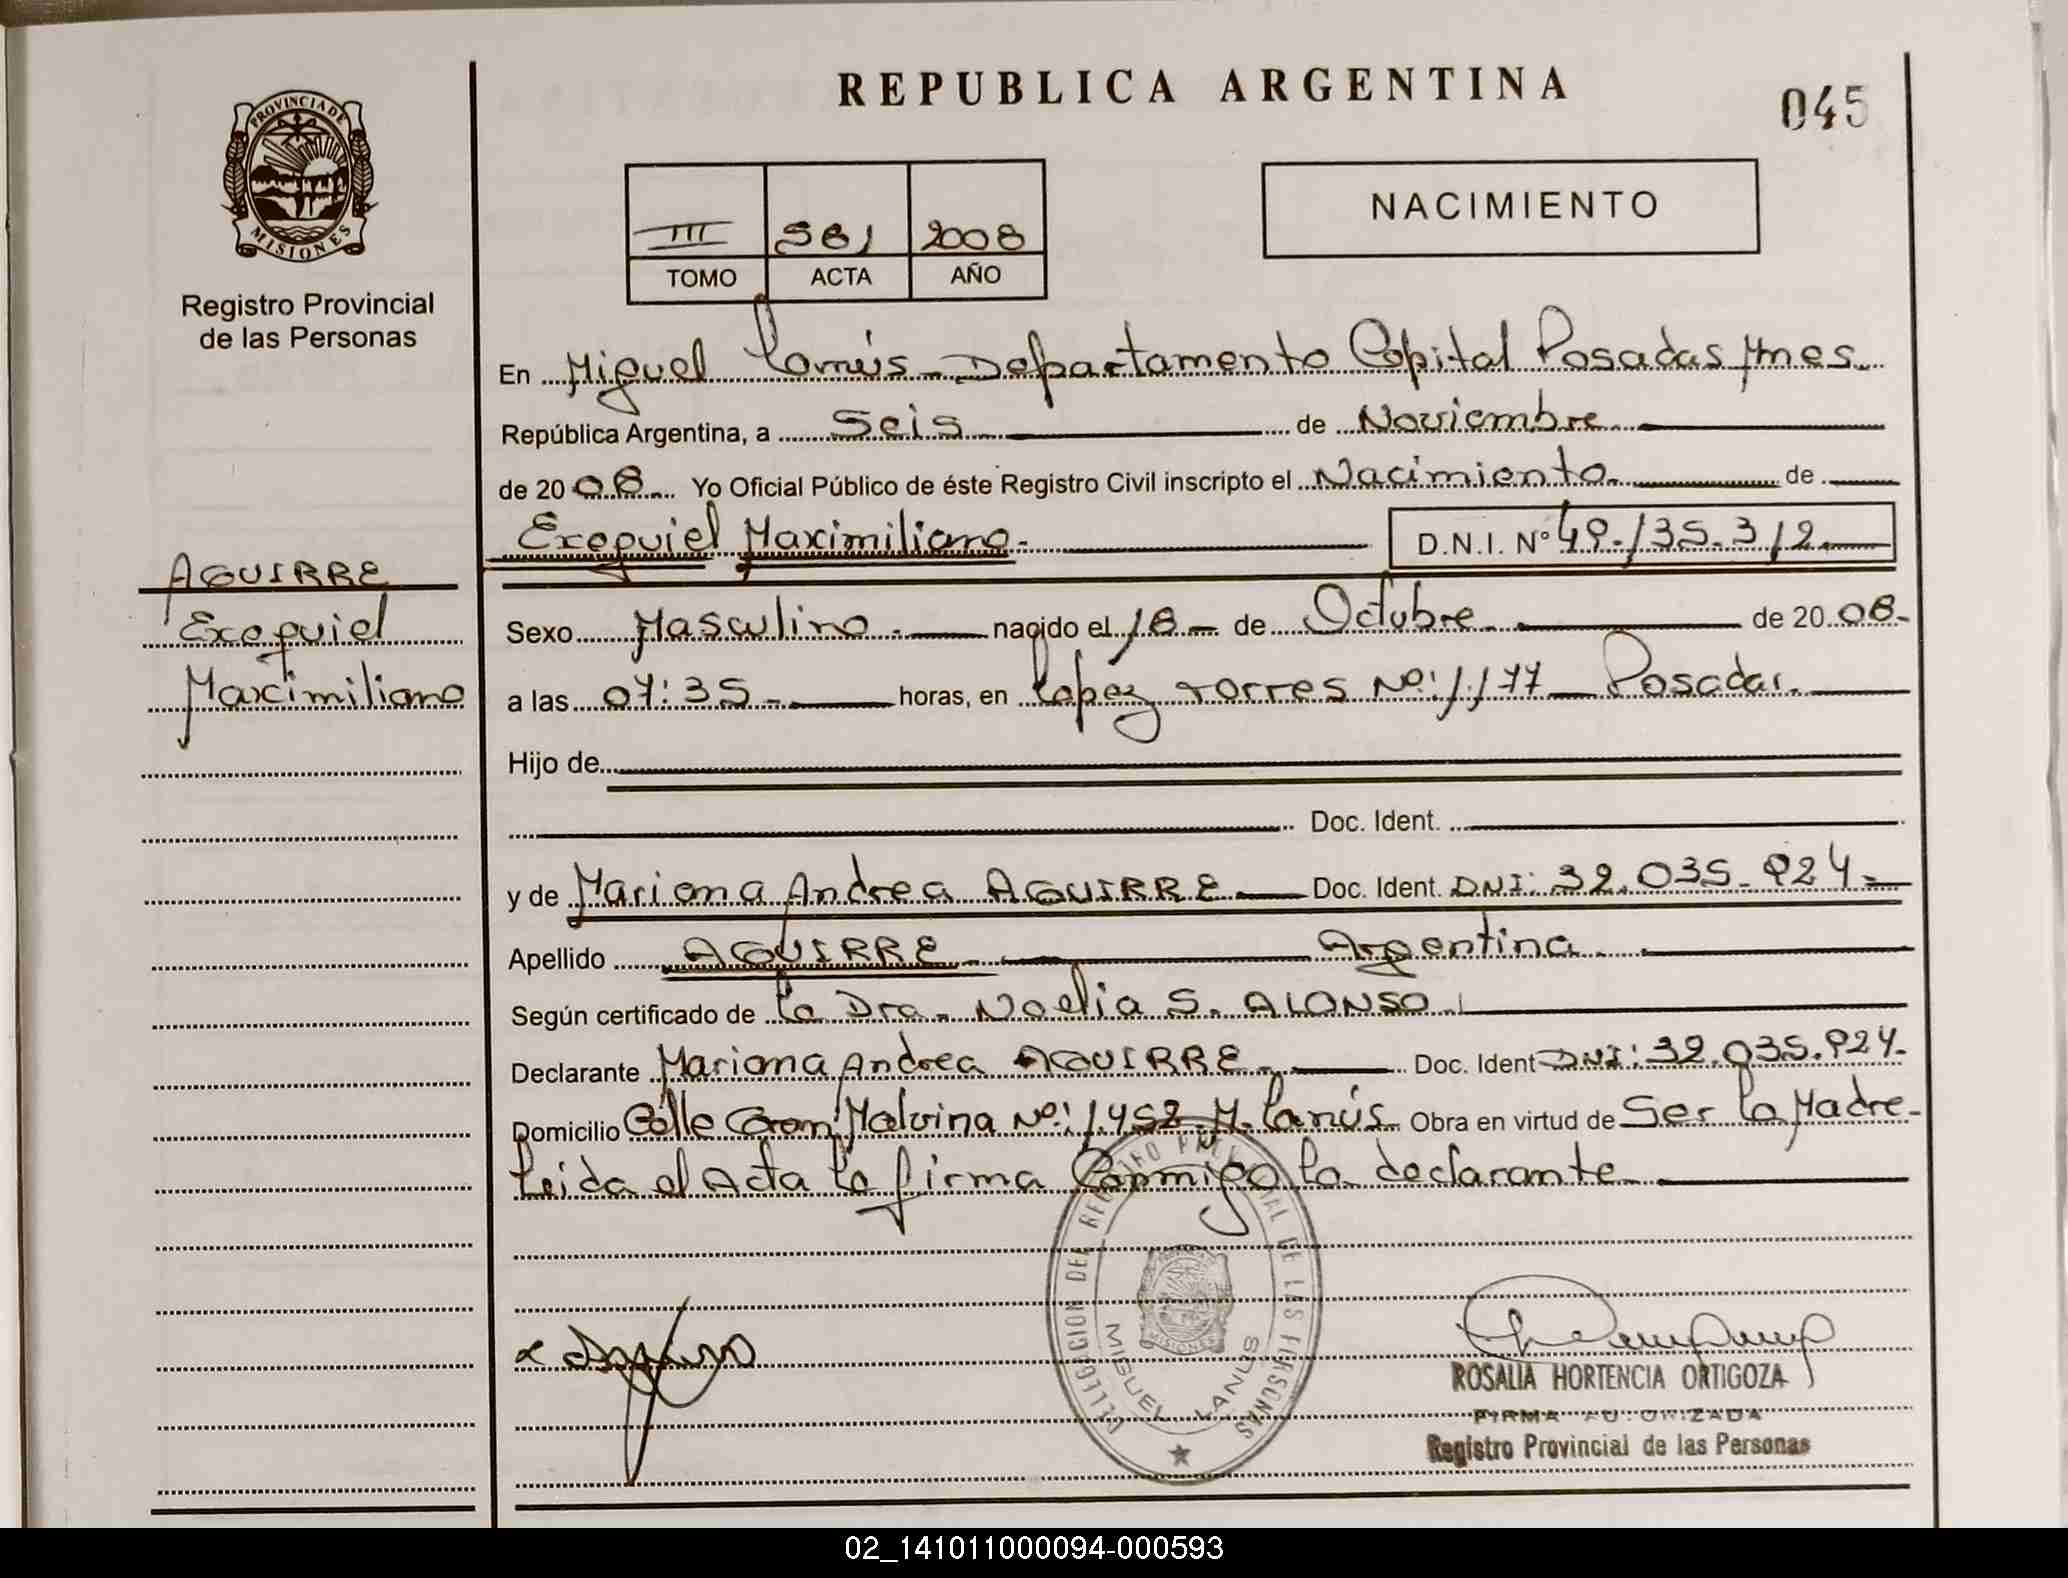 REPUBLICA ARGENTINA
045
PROVINCIA DE
MISIONES
Registro Provincial
de las Personas
III 581 2008
TOMO ACTA AÑO
NACIMIENTO
En Miguel Lanús - Departamento Capital Posadas Mnes.
República Argentina, a Seis de Noviembre
de 2008 Yo Oficial Público de éste Registro Civil inscripto el Nacimiento de
Exequiel Maximiliano.- D.N.I. Nº 49.135.312
AGUIRRE
Exequiel
Maximiliano
Sexo Masculino.- nacido el 18 - de Octubre de 2008.-
a las 07:35.- horas, en Lopez Torres Nº: 1.177 Posadas.
Hijo de
Doc. Ident.
y de Mariana Andrea AGUIRRE Doc. Ident. DNI: 32.035.924.-
Apellido AGUIRRE.- Argentina.-
Según certificado de la Dra. Noelia S. ALONSO.
Declarante Mariana Andrea AGUIRRE.- Doc. Ident DNI: 32.035.924.-
Domicilio Calle Gran Malvina Nº: 1.452 M. Lanús Obra en virtud de Ser la Madre-
Leida el Acta la firma Conmigo la declarante
DELEGACION DEL REGISTRO PROVINCIAL DE LAS PERSONAS
MISIONES
MIGUEL LANUS
ROSALIA HORTENCIA ORTIGOZA
FIRMA AUTORIZADA
Registro Provincial de las Personas
02_141011000094-000593